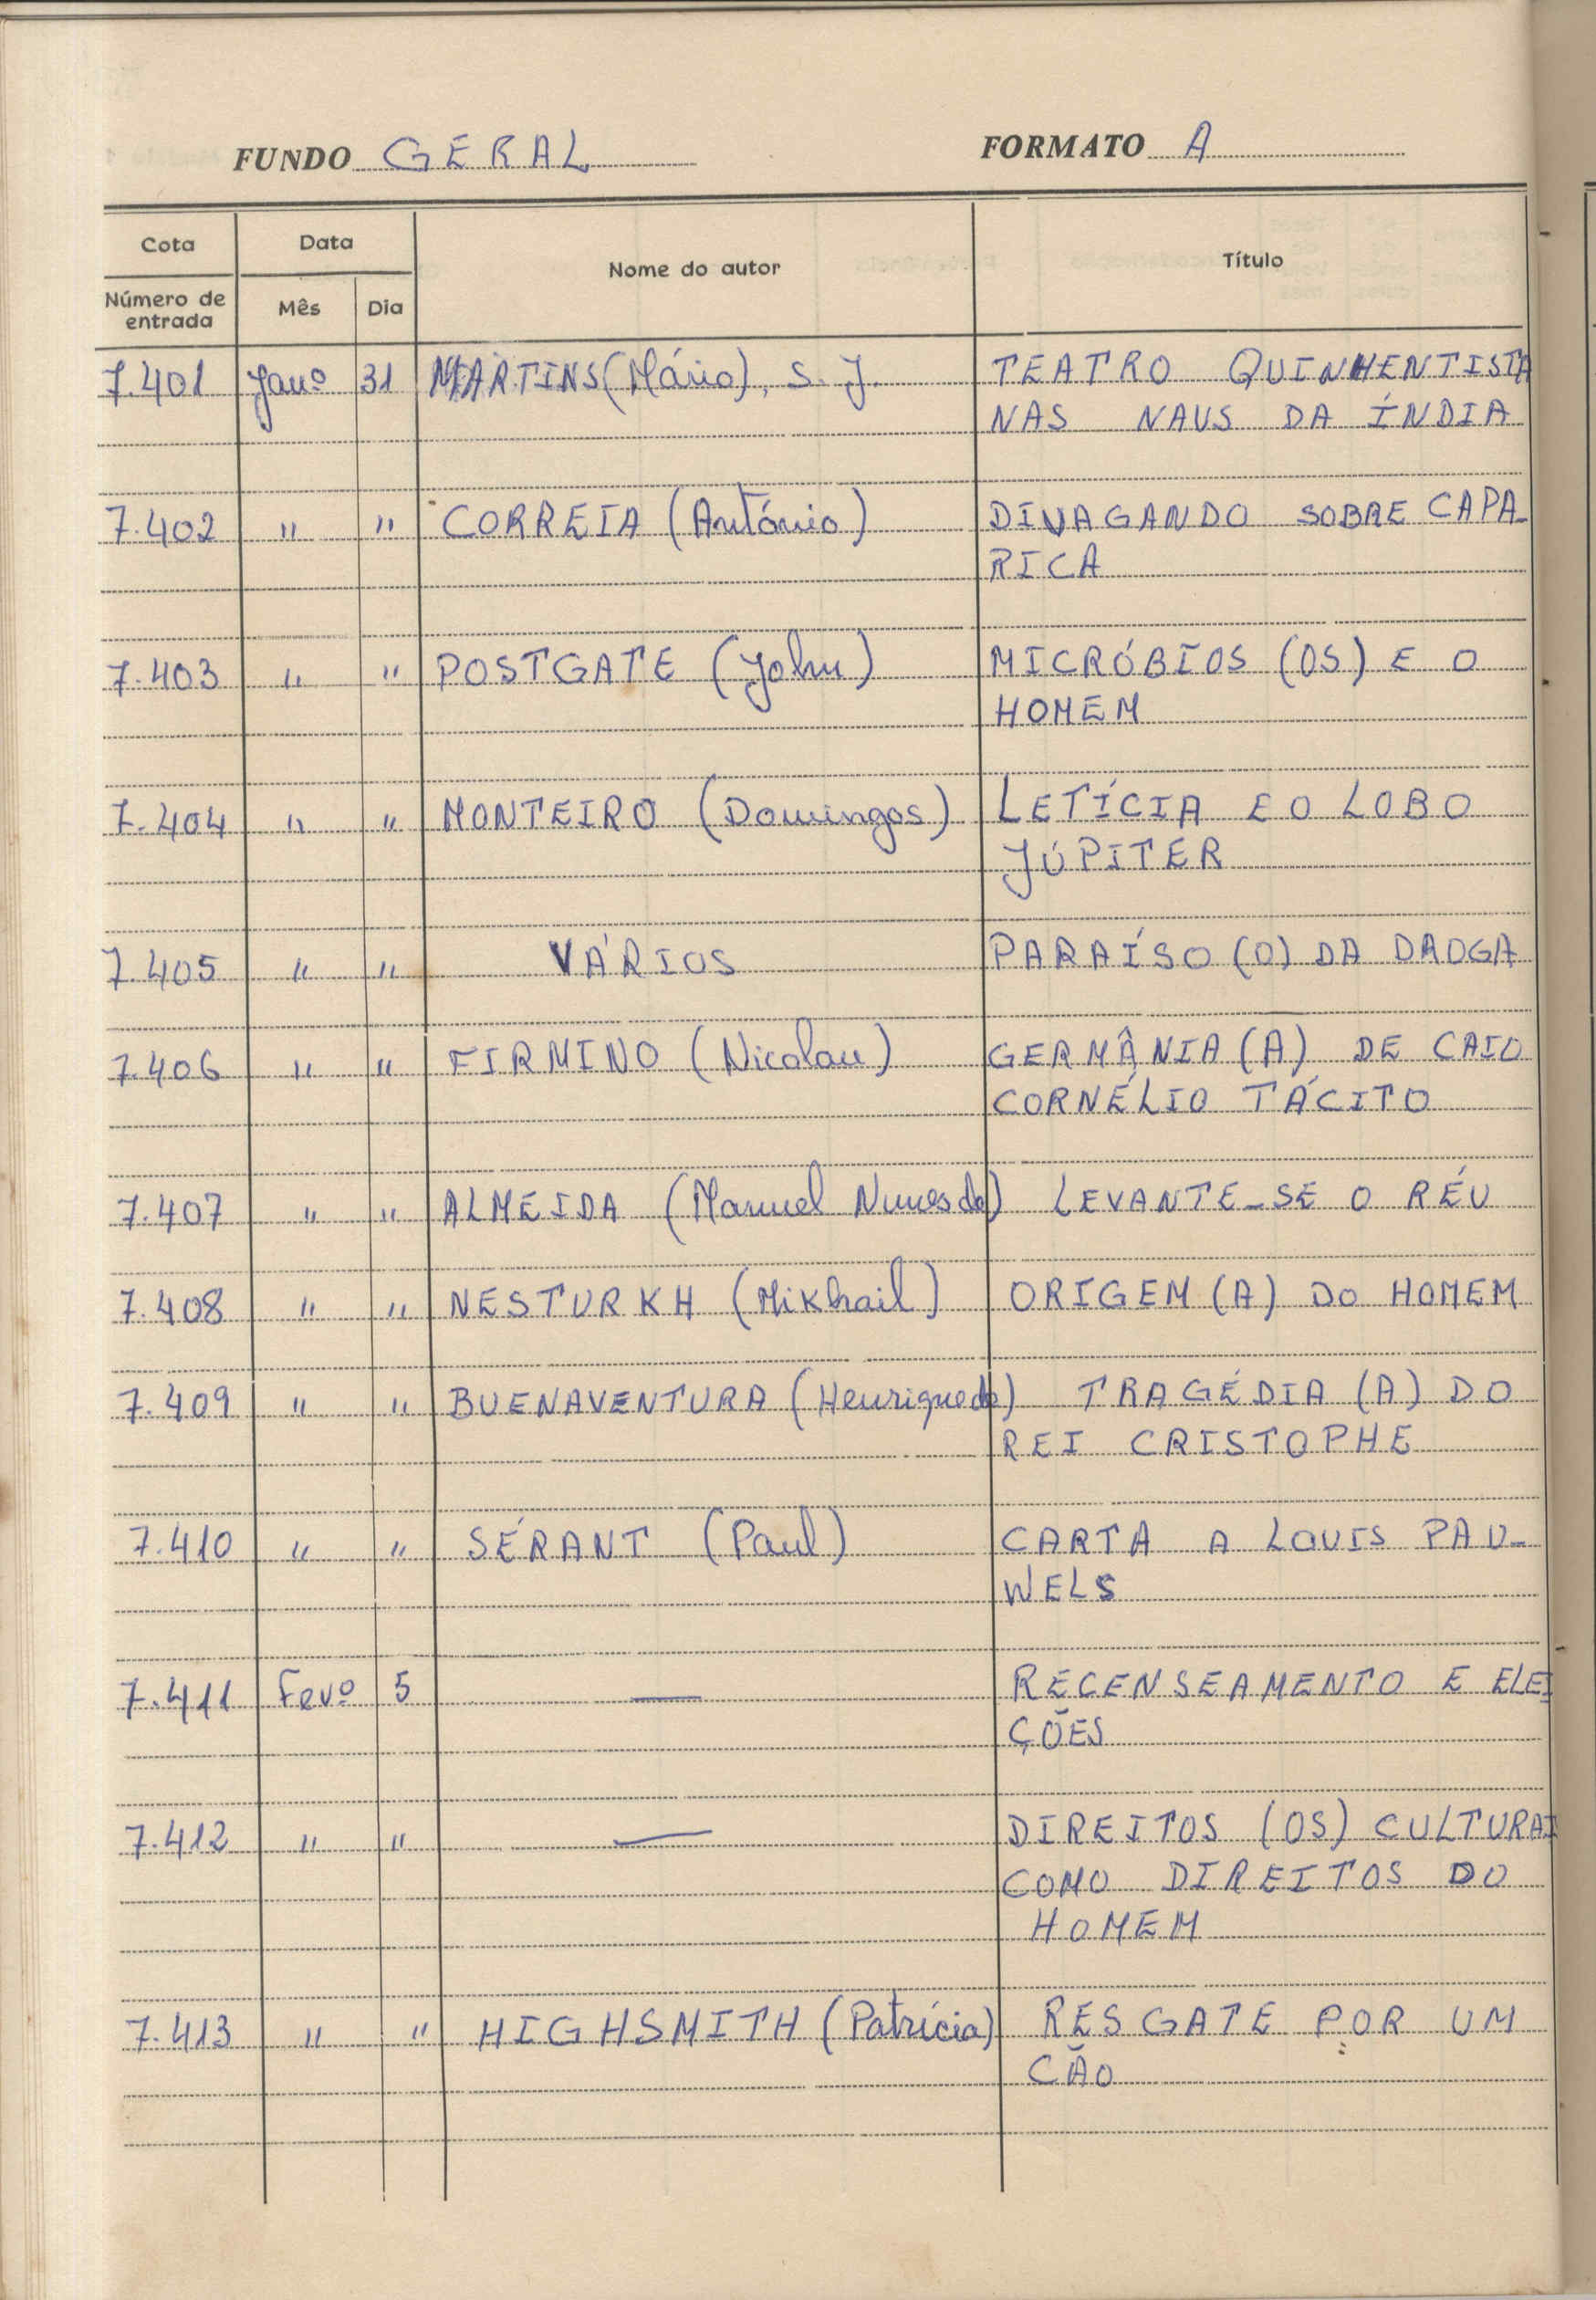 FUNDO GERAL FORMATO A
Cota Data Nome do autor Título
Número de entrada Mês Dia
7.401 Janº 31 MARTINS (Mário), S. J. TEATRO QUINHENTISTA
NAS NAUS DA ÍNDIA
7.402 " " CORREIA (António) DIVAGANDO SOBRE CAPA-
RICA
7.403 " " POSTGATE (John) MICRÓBIOS (OS) E O
HOMEM
7.404 " " MONTEIRO (Domingos) LETÍCIA E O LOBO
JÚPITER
7.405 " " VÁRIOS PARAÍSO (O) DA DROGA
7.406 " " FIRMINO (Nicolau) GERMÂNIA (A) DE CAIO
CORNÉLIO TÁCITO
7.407 " " ALMEIDA (Manuel Nunes de) LEVANTE-SE O RÉU
7.408 " " NESTURKH (Mikhail) ORIGEM (A) DO HOMEM
7.409 " " BUENAVENTURA (Henrique de) TRAGÉDIA (A) DO
REI CRISTOPHE
7.410 " " SÉRANT (Paul) CARTA A LOUIS PAU-
WELS
7.411 Fevº 5 — RECENSEAMENTO E ELEI
ÇÕES
7.412 " " — DIREITOS (OS) CULTURAI
COMO DIREITOS DO
HOMEM
7.413 " " HIGHSMITH (Patrícia) RESGATE POR UM
CÃO